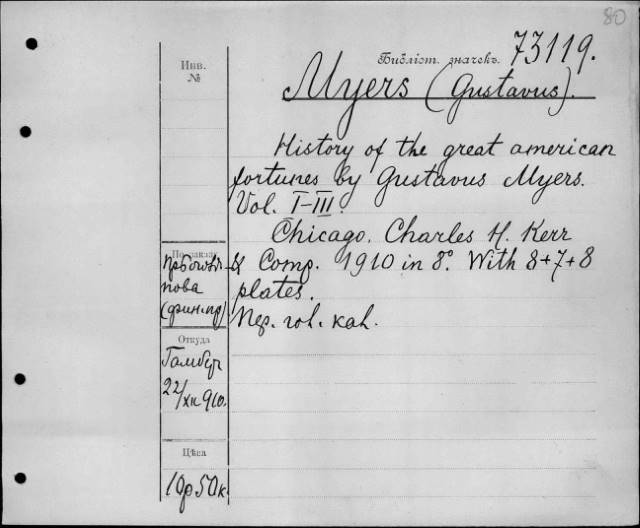 80
Библіот. значекъ. 73119.
Инв.
№
Myers (Gustavus).
History of the great american
fortunes by Gustavus Myers.
Vol. I-III.
Chicago. Charles H. Kerr
& Comp. 1910 in 8°. With 8+7+8
plates.
Пер. кол. кан.
По заказу
нова
(фин.пр)
Откуда
22/XII 910.
Цѣна
10р50к